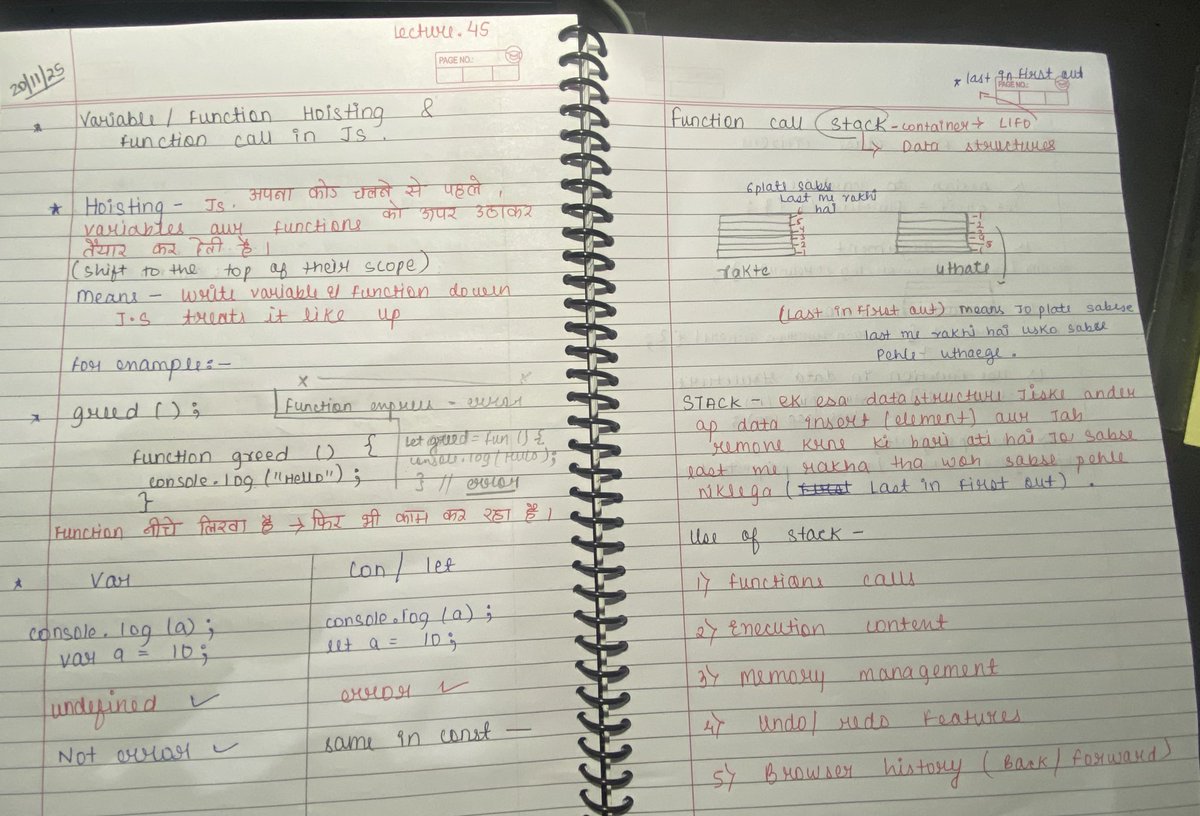 Lecture. 45
PAGE NO.:
20/11/25
* Variable / Function Hoisting &
function call in Js.
* Hoisting - Js. अपना कोड चलने से पहले,
variables aur functions को ऊपर उठाकर
तैयार कर देती है।
(shift to the top of their scope)
means - write variable & function down
J.S treats it like up
for example:-
x x
* greed ();
Function express - error
function greed () {
console.log ("Hello");
}
let greed = fun () {
console.log (Hello);
} // error
Function नीचे लिखा है → फिर भी काम कर रहा है।
* var
console.log (a);
var a = 10;
undefined ✓
Not error ✓
con / let
console.log (a);
let a = 10;
error ✓
same in const —
* last in first out
PAGE NO.:
Function call stack - container → LIFO
↳ Data structures
6 plate sabse
last me rakhi
hai
6
5
4
3
2
1
rakte
1
2
3
4
5
uthate
(Last in first out) means Jo plate sabse
last me rakhi hai usko sabse
pehle uthaege.
STACK - ek esa data structure Jiske ander
ap data insert (element) aur Jab
remove krne ki bari ati hai Jo sabse
last me rakha tha woh sabse pehle
niklega (first Last in First out).
Use of stack -
1) functions calls
2) Execution content
3) memory management
4) Undo/ redo Features
5) Browser history (Back/ forward)